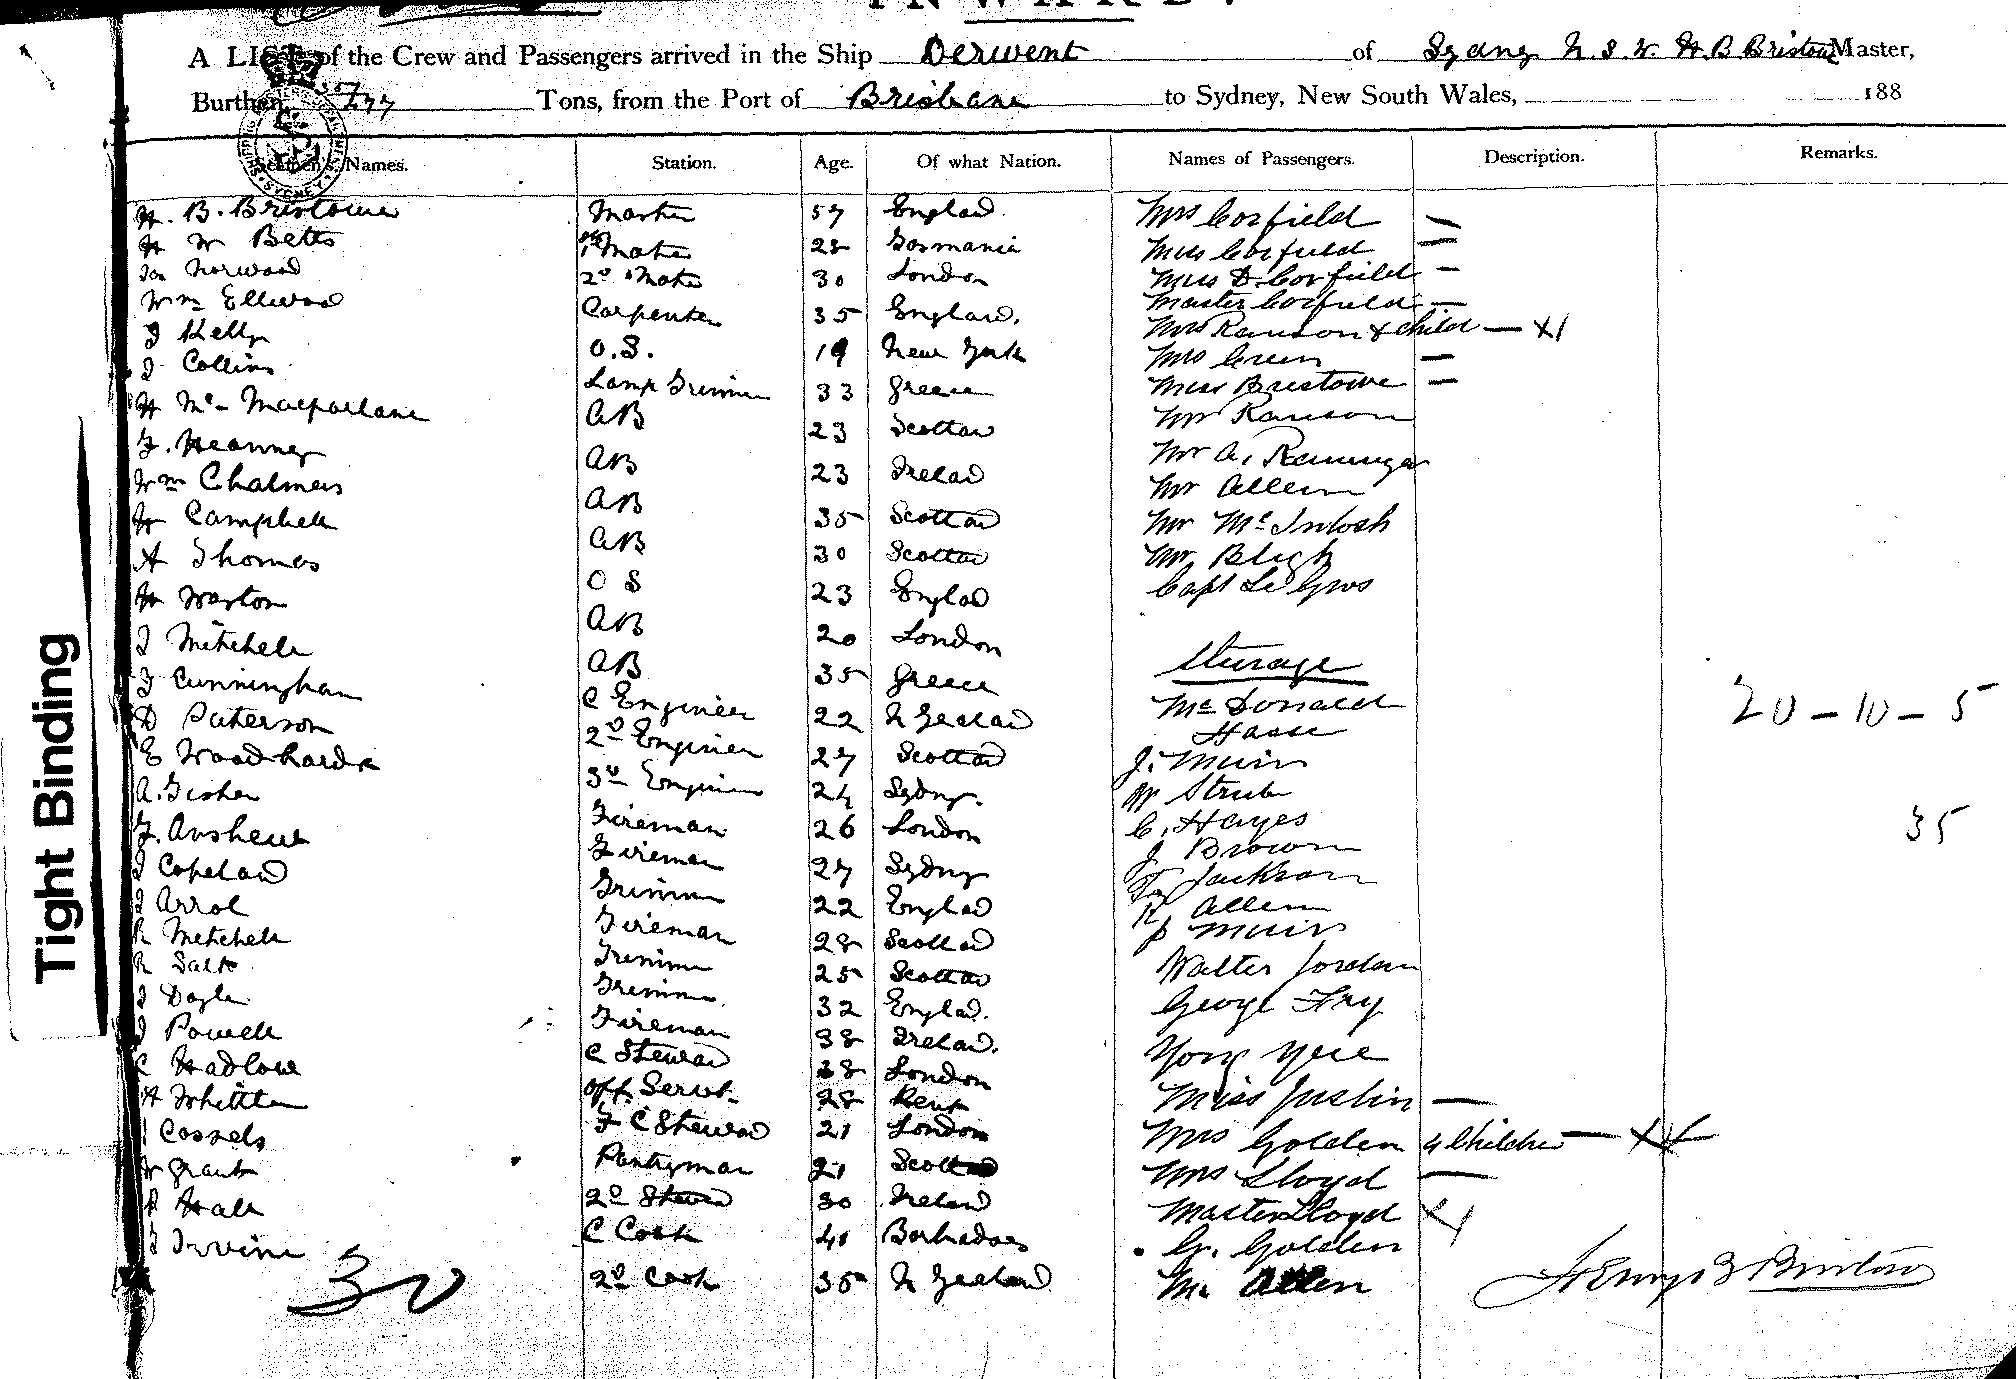 INWARD.
A LIST of the Crew and Passengers arrived in the Ship Derwent of Sydney N.S.W. H.B. Bristow Master,
Burthen, Tons, from the Port of Brisbane to Sydney, New South Wales, 188
Seamen's Names. Station. Age. Of what Nation. Names of Passengers. Description. Remarks.
H. B. Bristowe Master 57 England. Mrs Corfield —
H W Betts 1st Mate 28 Tasmania Miss Corfield —
Norwood 2d Mate 30 London Miss D. Corfield —
Wm Ellwood Carpenter 35 England. Master Corfield —
J Kelly O.S. 19 New York Mrs Ranson & Child —
J Collins Lamp Trimmer 33 Greece Mrs Green —
H Mc- Macfarlane AB 23 Scotland Miss Bristowe —
AB 23 Ireland Mr Ranson
Wm Chalmers AB 35 Scotland Mr A.
H Campbell AB 30 Scotland Mr Allen
A Thomas O S 23 England Mr McIntosh
H Warton AB 20 London Mr Bligh
J Mitchell AB 35 Greece Capt Le Gros
J Cunningham C Engineer 22 N Zealand Sturage
D Paterson 2d Engineer 27 Scotland McDonald
E Woodhards 3d Engineer 24 Sydney. Hasse
A. Fisher Fireman 26 London J. Muir
Fireman 27 Sydney W Strub
J Copeland Trimmer 22 England C. Hayes
J Arrol Fireman 28 Scotland J Brown
R Mitchell Trimmer 25 Scotland Jackson
R Salt Trimmer. 32 England. R Allen
J Doyle Fireman 38 Ireland. P Muir
J Powell C Steward 38 London Walter Jordan
C Hadlow Off. Servt. 28 Kent George Fry
H Whittle F C Steward 21 London Yong Yee
Cassels Pantryman 21 Scotland Miss Justin —
W Grant 2d Steward 30 Ireland Mrs Golden 4 Children —
Hall C Cook 41 Barbadoes Mrs Lloyd —
J Irvine 2d Cook 35 N Zealand Master Lloyd
G. Golden
Mr Allen
30
20 - 10 - 5
35
Henry B Bristow
Tight Binding